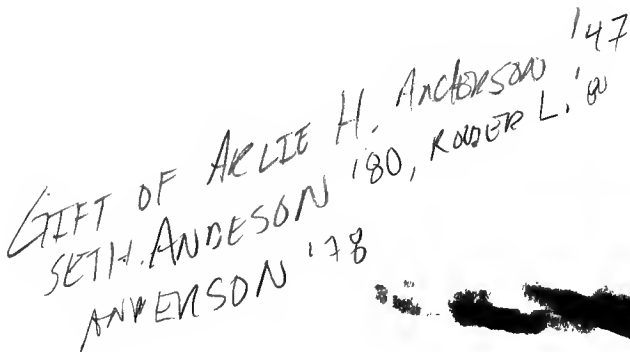 GIFT OF ARLIE H. Anderson '47
SETH. ANDESON '80, ROGER L. '80
ANDERSON '78